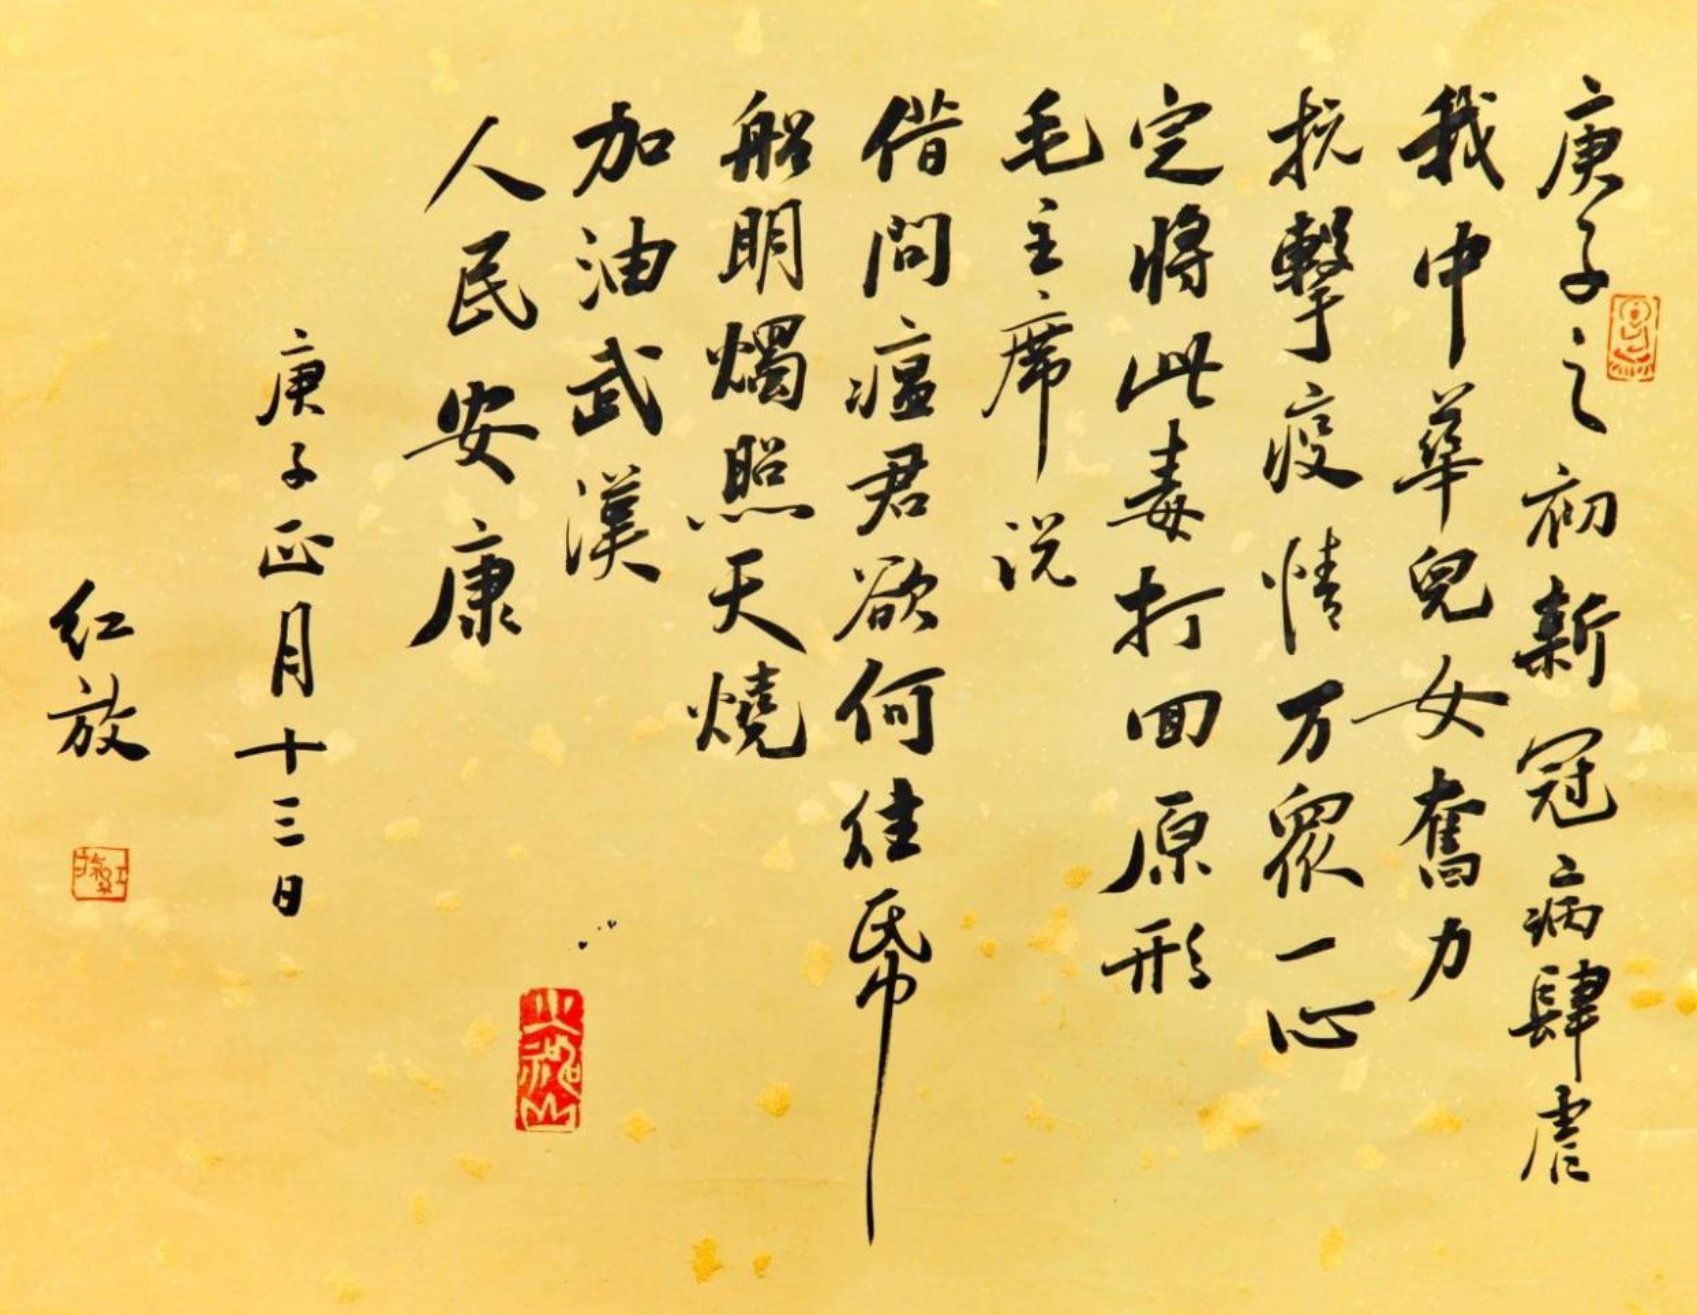 庚子之初新冠病肆虐
我中華兒女奮力
抗擊疫情万眾一心
定將此毒打回原形
毛主席说
借問瘟君欲何往紙
船明燭照天燒
加油武漢
人民安康
庚子正月十三日
红放